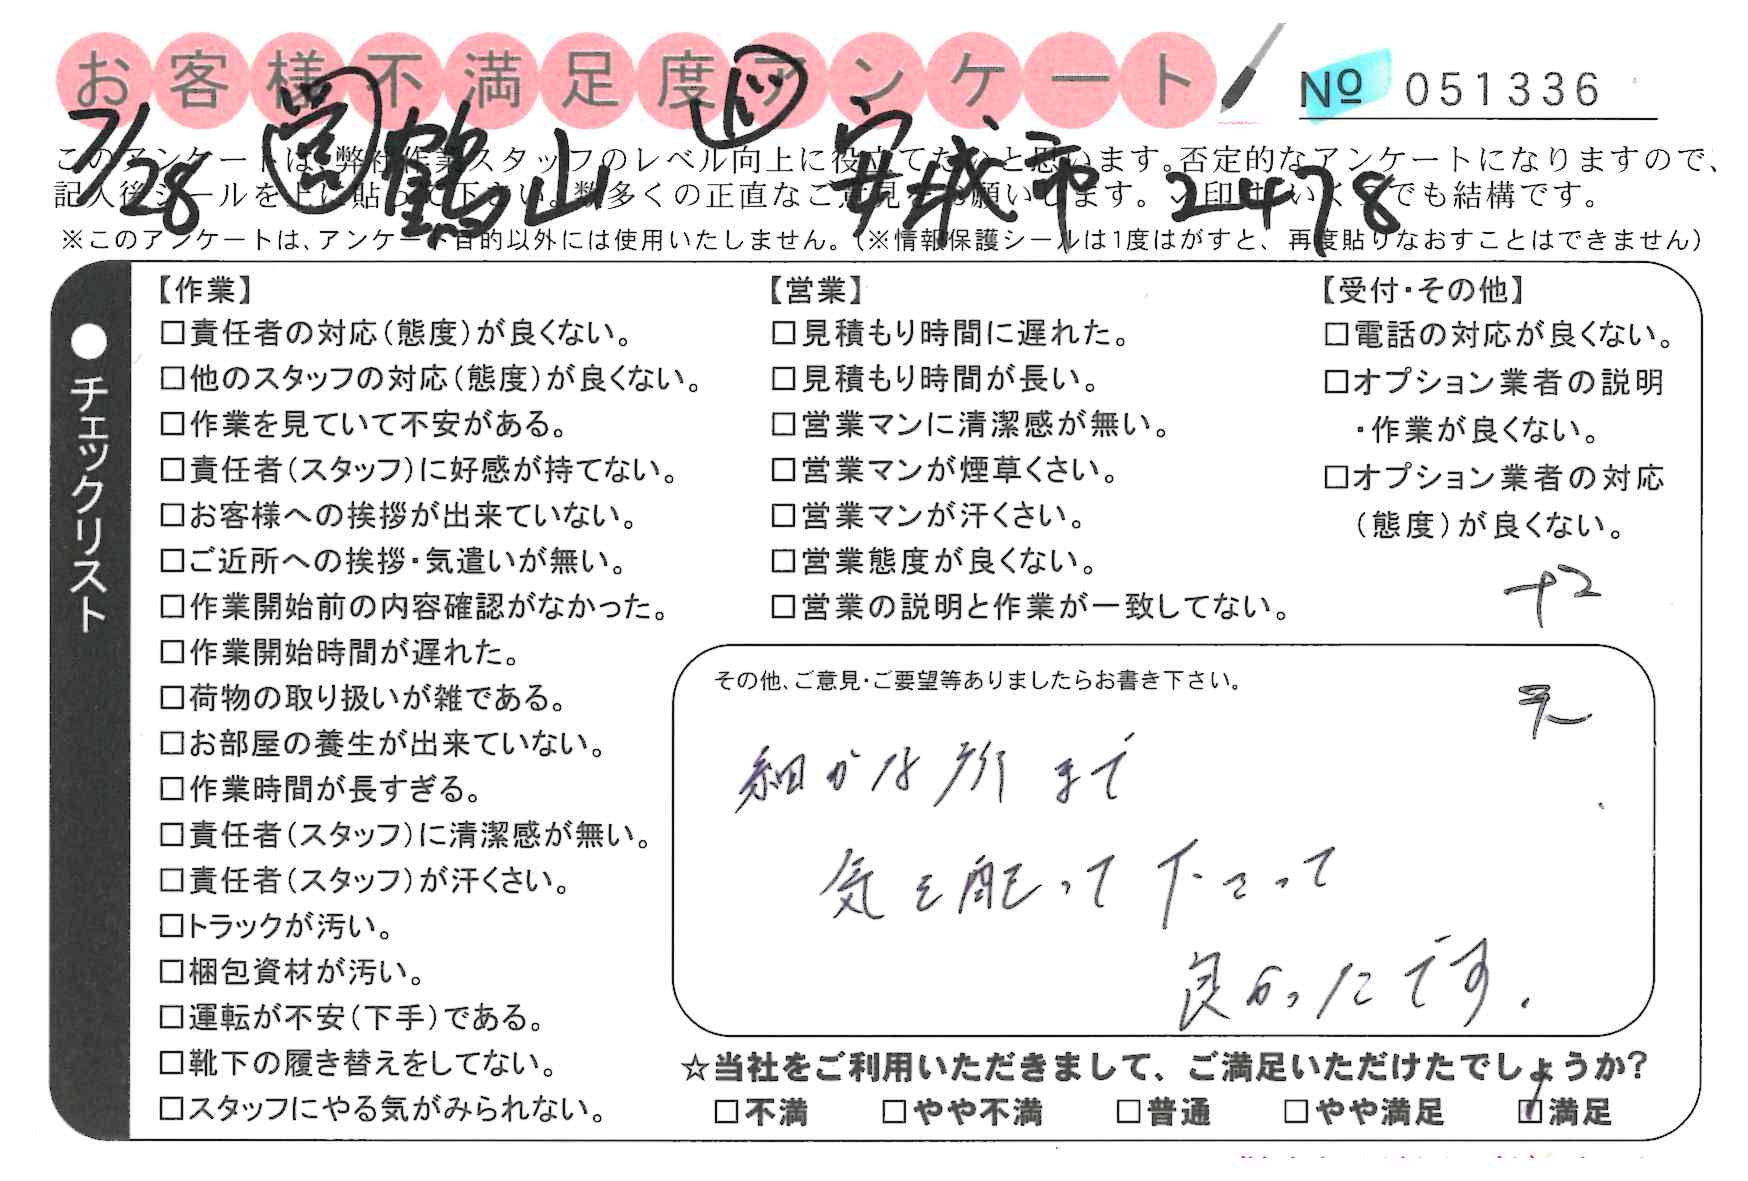 お客様不満足度アンケート
№ 051336
7/28 営 鶴山 安城市 2478
このアンケートは、弊社作業スタッフのレベル向上に役立てたいと思います。否定的なアンケートになりますので、
記入後シールを上に貼って下さい。数多くの正直なご意見をお願いします。✓印はいくつでも結構です。
※このアンケートは、アンケート目的以外には使用いたしません。（※情報保護シールは1度はがすと、再度貼りなおすことはできません）
●チェックリスト
【作業】
□責任者の対応（態度）が良くない。
□他のスタッフの対応（態度）が良くない。
□作業を見ていて不安がある。
□責任者（スタッフ）に好感が持てない。
□お客様への挨拶が出来ていない。
□ご近所への挨拶・気遣いが無い。
□作業開始前の内容確認がなかった。
□作業開始時間が遅れた。
□荷物の取り扱いが雑である。
□お部屋の養生が出来ていない。
□作業時間が長すぎる。
□責任者（スタッフ）に清潔感が無い。
□責任者（スタッフ）が汗くさい。
□トラックが汚い。
□梱包資材が汚い。
□運転が不安（下手）である。
□靴下の履き替えをしてない。
□スタッフにやる気がみられない。
【営業】
□見積もり時間に遅れた。
□見積もり時間が長い。
□営業マンに清潔感が無い。
□営業マンが煙草くさい。
□営業マンが汗くさい。
□営業態度が良くない。
□営業の説明と作業が一致してない。
【受付・その他】
□電話の対応が良くない。
□オプション業者の説明
・作業が良くない。
□オプション業者の対応
（態度）が良くない。
+2
その他、ご意見・ご要望等ありましたらお書き下さい。
細かな所まで
気を配って下さって
良かったです.
☆当社をご利用いただきまして、ご満足いただけたでしょうか?
□不満 □やや不満 □普通 □やや満足 ☑満足